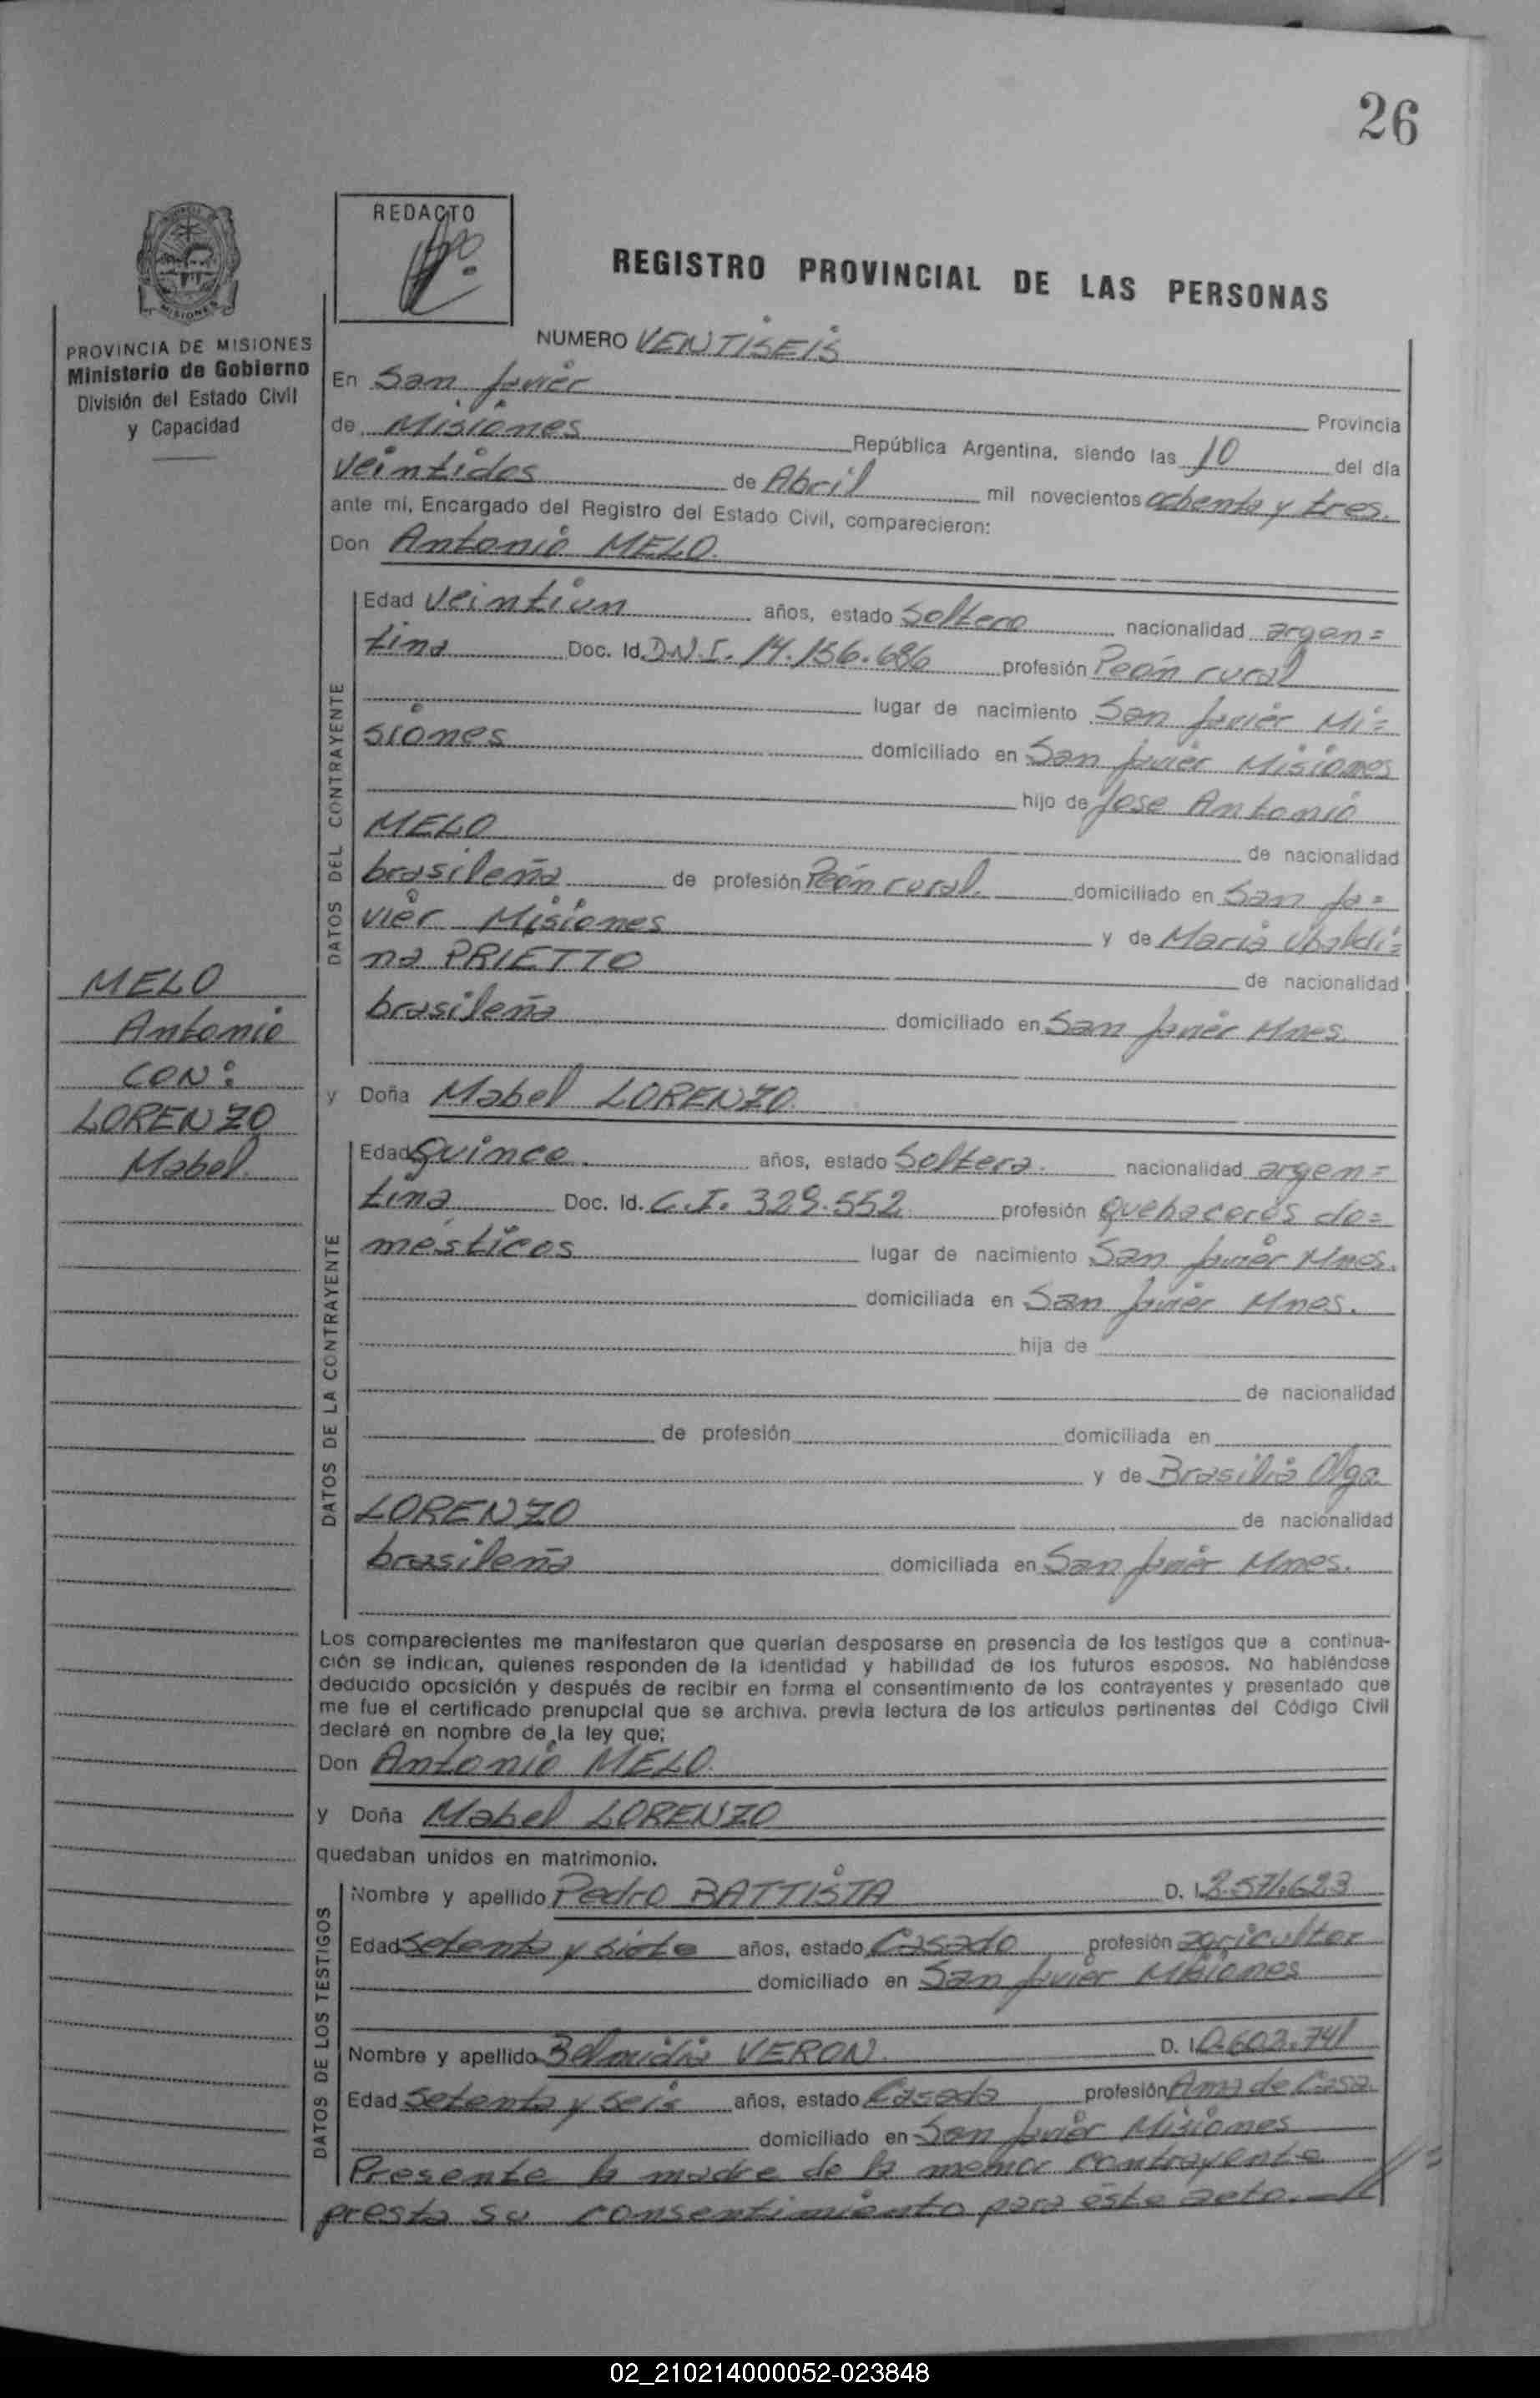 26
REDACTO
REGISTRO PROVINCIAL DE LAS PERSONAS
PROVINCIA DE MISIONES
Ministerio de Gobierno
División del Estado Civil
y Capacidad
NUMERO VENTISEIS
En San Javier Provincia
de Misiones República Argentina, siendo las 10 del día
veintidos de Abril mil novecientos ochenta y tres.
ante mí, Encargado del Registro del Estado Civil, comparecieron:
Don Antonio MELO.
DATOS DEL CONTRAYENTE
Edad veintiun años, estado Soltero nacionalidad argen=
tina Doc. Id. D.N.I. 14.156.686 profesión Peón rural
lugar de nacimiento San Javier Mi=
siones domiciliado en San Javier Misiones
hijo de Jose Antonio
MELO de nacionalidad
brasileña de profesión Peón rural. domiciliado en San Ja=
vier Misiones y de Maria Ubaldi=
na PRIETTO de nacionalidad
brasileña domiciliado en San Javier Mnes.
MELO
Antonio
CON:
LORENZO
Mabel.
y Doña Mabel LORENZO.
DATOS DE LA CONTRAYENTE
Edad Quince. años, estado Soltera. nacionalidad argen=
tina Doc. Id. C.I. 329.552 profesión Quehaceres do=
mésticos lugar de nacimiento San Javier Mnes.
domiciliada en San Javier Mnes.
hija de
de nacionalidad
de profesión domiciliada en
y de Brasilia Olga
LORENZO de nacionalidad
brasileña domiciliada en San Javier Mnes.
Los comparecientes me manifestaron que querían desposarse en presencia de los testigos que a continua-
ción se indican, quienes responden de la identidad y habilidad de los futuros esposos. No habiéndose
deducido oposición y después de recibir en forma el consentimiento de los contrayentes y presentado que
me fue el certificado prenupcial que se archiva, previa lectura de los artículos pertinentes del Código Civil
declaré en nombre de la ley que;
Don Antonio MELO.
y Doña Mabel LORENZO
quedaban unidos en matrimonio.
DATOS DE LOS TESTIGOS
Nombre y apellido Pedro BATTISTA D. I. 2.571.623
Edad Setenta y siete años, estado Casado profesión agricultor
domiciliado en San Javier Misiones
Nombre y apellido Belmidia VERON. D. I. 0.603.741
Edad Setenta y seis años, estado Casada profesión Ama de Casa.
domiciliado en San Javier Misiones
Presente la madre de la menor contrayente
presta su consentimiento para éste acto.
02_210214000052-023848